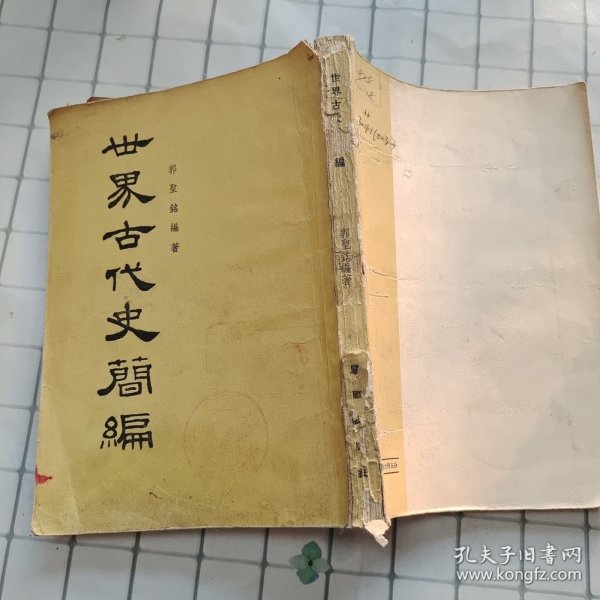 世界古代史簡編
郭聖銘編著
世界古
編
郭聖銘編著
孔夫子旧书网
www.kongfz.com